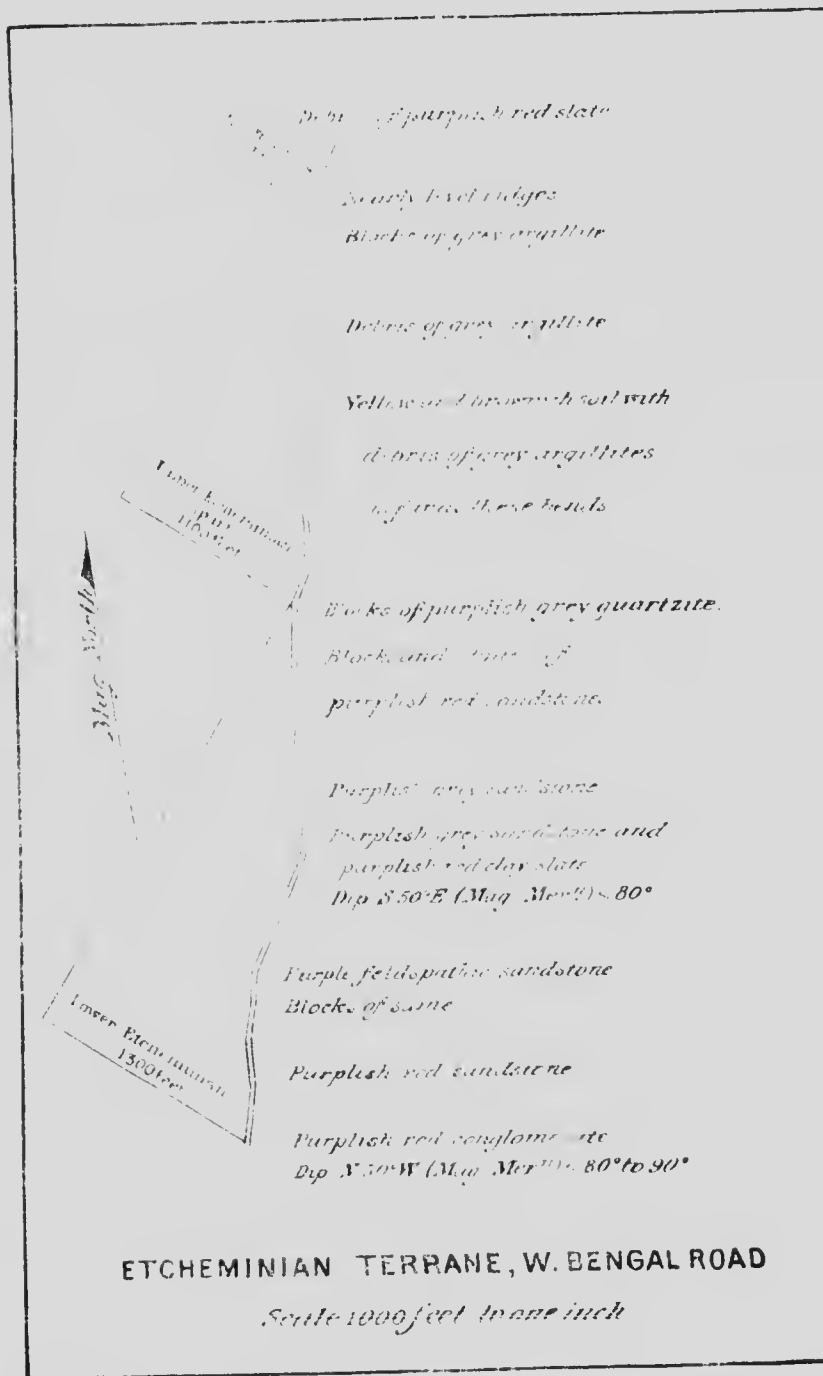 of purplish red slate
Nearly level ridges
Blocks of grey argillite
Debris of grey argillite
Yellow and brownish soil with
debris of grey argillites
these bends
Upper Etcheminian
(part)
1100 feet
Mag. North
Blocks of purplish grey quartzite.
Blocks and of
purplish red sandstone.
Purplish grey sandstone
Purplish grey sandstone and
purplish red clay slate
Dip S 50° E (Mag. Merⁿ) < 80°
Purple feldspathic sandstone
Blocks of same
Lower Etcheminian
1300 feet
Purplish red sandstone
Purplish red conglomerate
Dip N 50° W (Mag. Merⁿ) < 80° to 90°
ETCHEMINIAN TERRANE, W. BENGAL ROAD
Scale 1000 feet to one inch